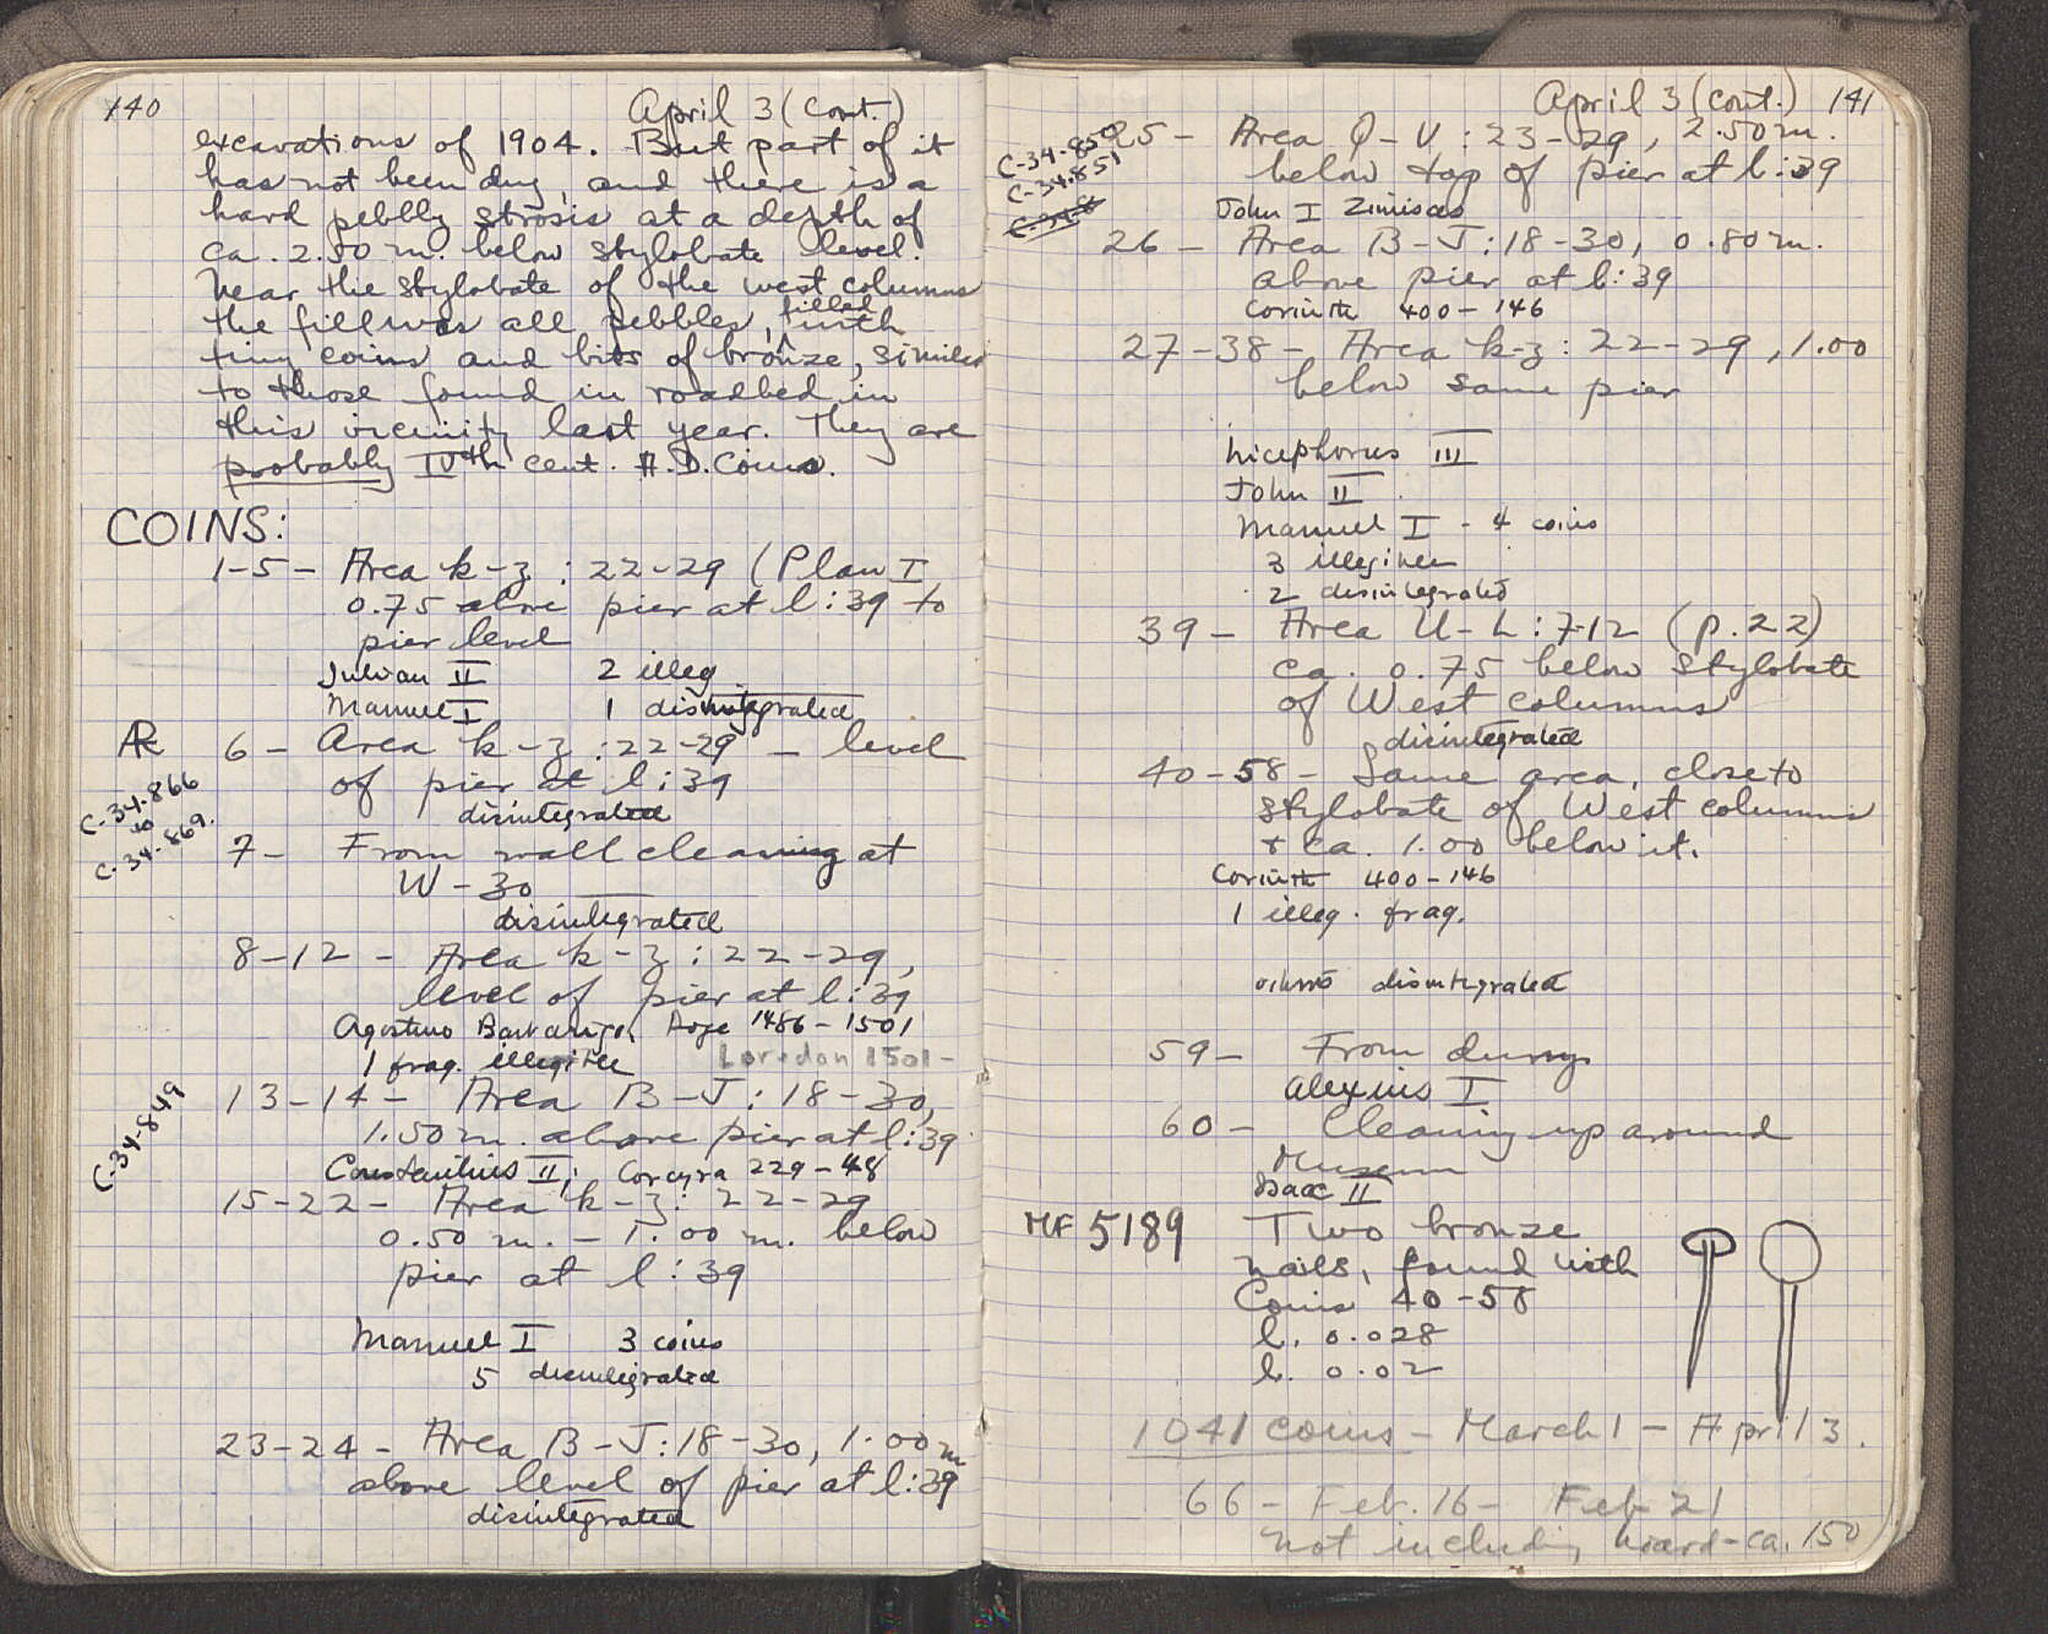 140
April 3 (Cont.)
excavations of 1904. But part of it
has not been dug, and there is a
hard pebbly strosis at a depth of
ca. 2.50 m. below stylobate level.
Near the stylobate of the west columns
the fill was all pebbles, filled with
tiny coins and bits of bronze, similar
to those found in roadbed in
this vicinity last year. They are
probably IVth cent. A.D. Coins.
COINS:
1-5 - Area k-z : 22-29 (Plan I
0.75 above pier at l:39 to
pier level
Julian II 2 illeg.
Manuel I 1 disintegrated
AR 6 - Area k-z : 22-29 - level
of pier at l:39
disintegrated
C-34-866
to
C-34-869.
7 - From wall cleaning at
W-30
disintegrated
8-12 - Area k-z : 22-29,
level of pier at l:39
Agostino Barbarigo, Doge 1486-1501
1 frag. illegible Loredan 1501-
C-34-849
13-14 - Area B-J : 18-30,
1.50 m. above pier at l:39.
Constantius II; Corcyra 229-48
15-22 - Area k-z : 22-29
0.50 m. - 1.00 m. below
pier at l:39
Manuel I 3 coins
5 disintegrated
23-24 - Area B-J:18-30, 1.00 m
above level of pier at l:39
disintegrated
April 3 (Cont.) 141
C-34-850
C-34-851
C-34-8
25 - Area Q-V : 23-29, 2.50 m.
below top of pier at l:39
John I Zimisces
26 - Area B-J : 18-30, 0.80 m.
above pier at l:39
Corinth 400-146
27-38 - Area k-z : 22-29, 1.00
below same pier
Nicephorus III
John II
Manuel I - 4 coins
3 illegible
2 disintegrated
39 - Area U-L : 7-12 (p.22)
ca. 0.75 below stylobate
of West columns
disintegrated
40-58 - Same area, close to
stylobate of West columns
+ ca. 1.00 below it.
Corinth 400-146
1 illeg. frag.
others disintegrated
59 - From dump
Alexius I
60 - Cleaning up around
Museum
Isaac II
MF 5189 Two bronze
nails, found with
Coins 40-58
l. 0.028
l. 0.02
1041 coins - March 1 - April 3.
66 - Feb. 16 - Feb 21
not including hoard - ca. 150